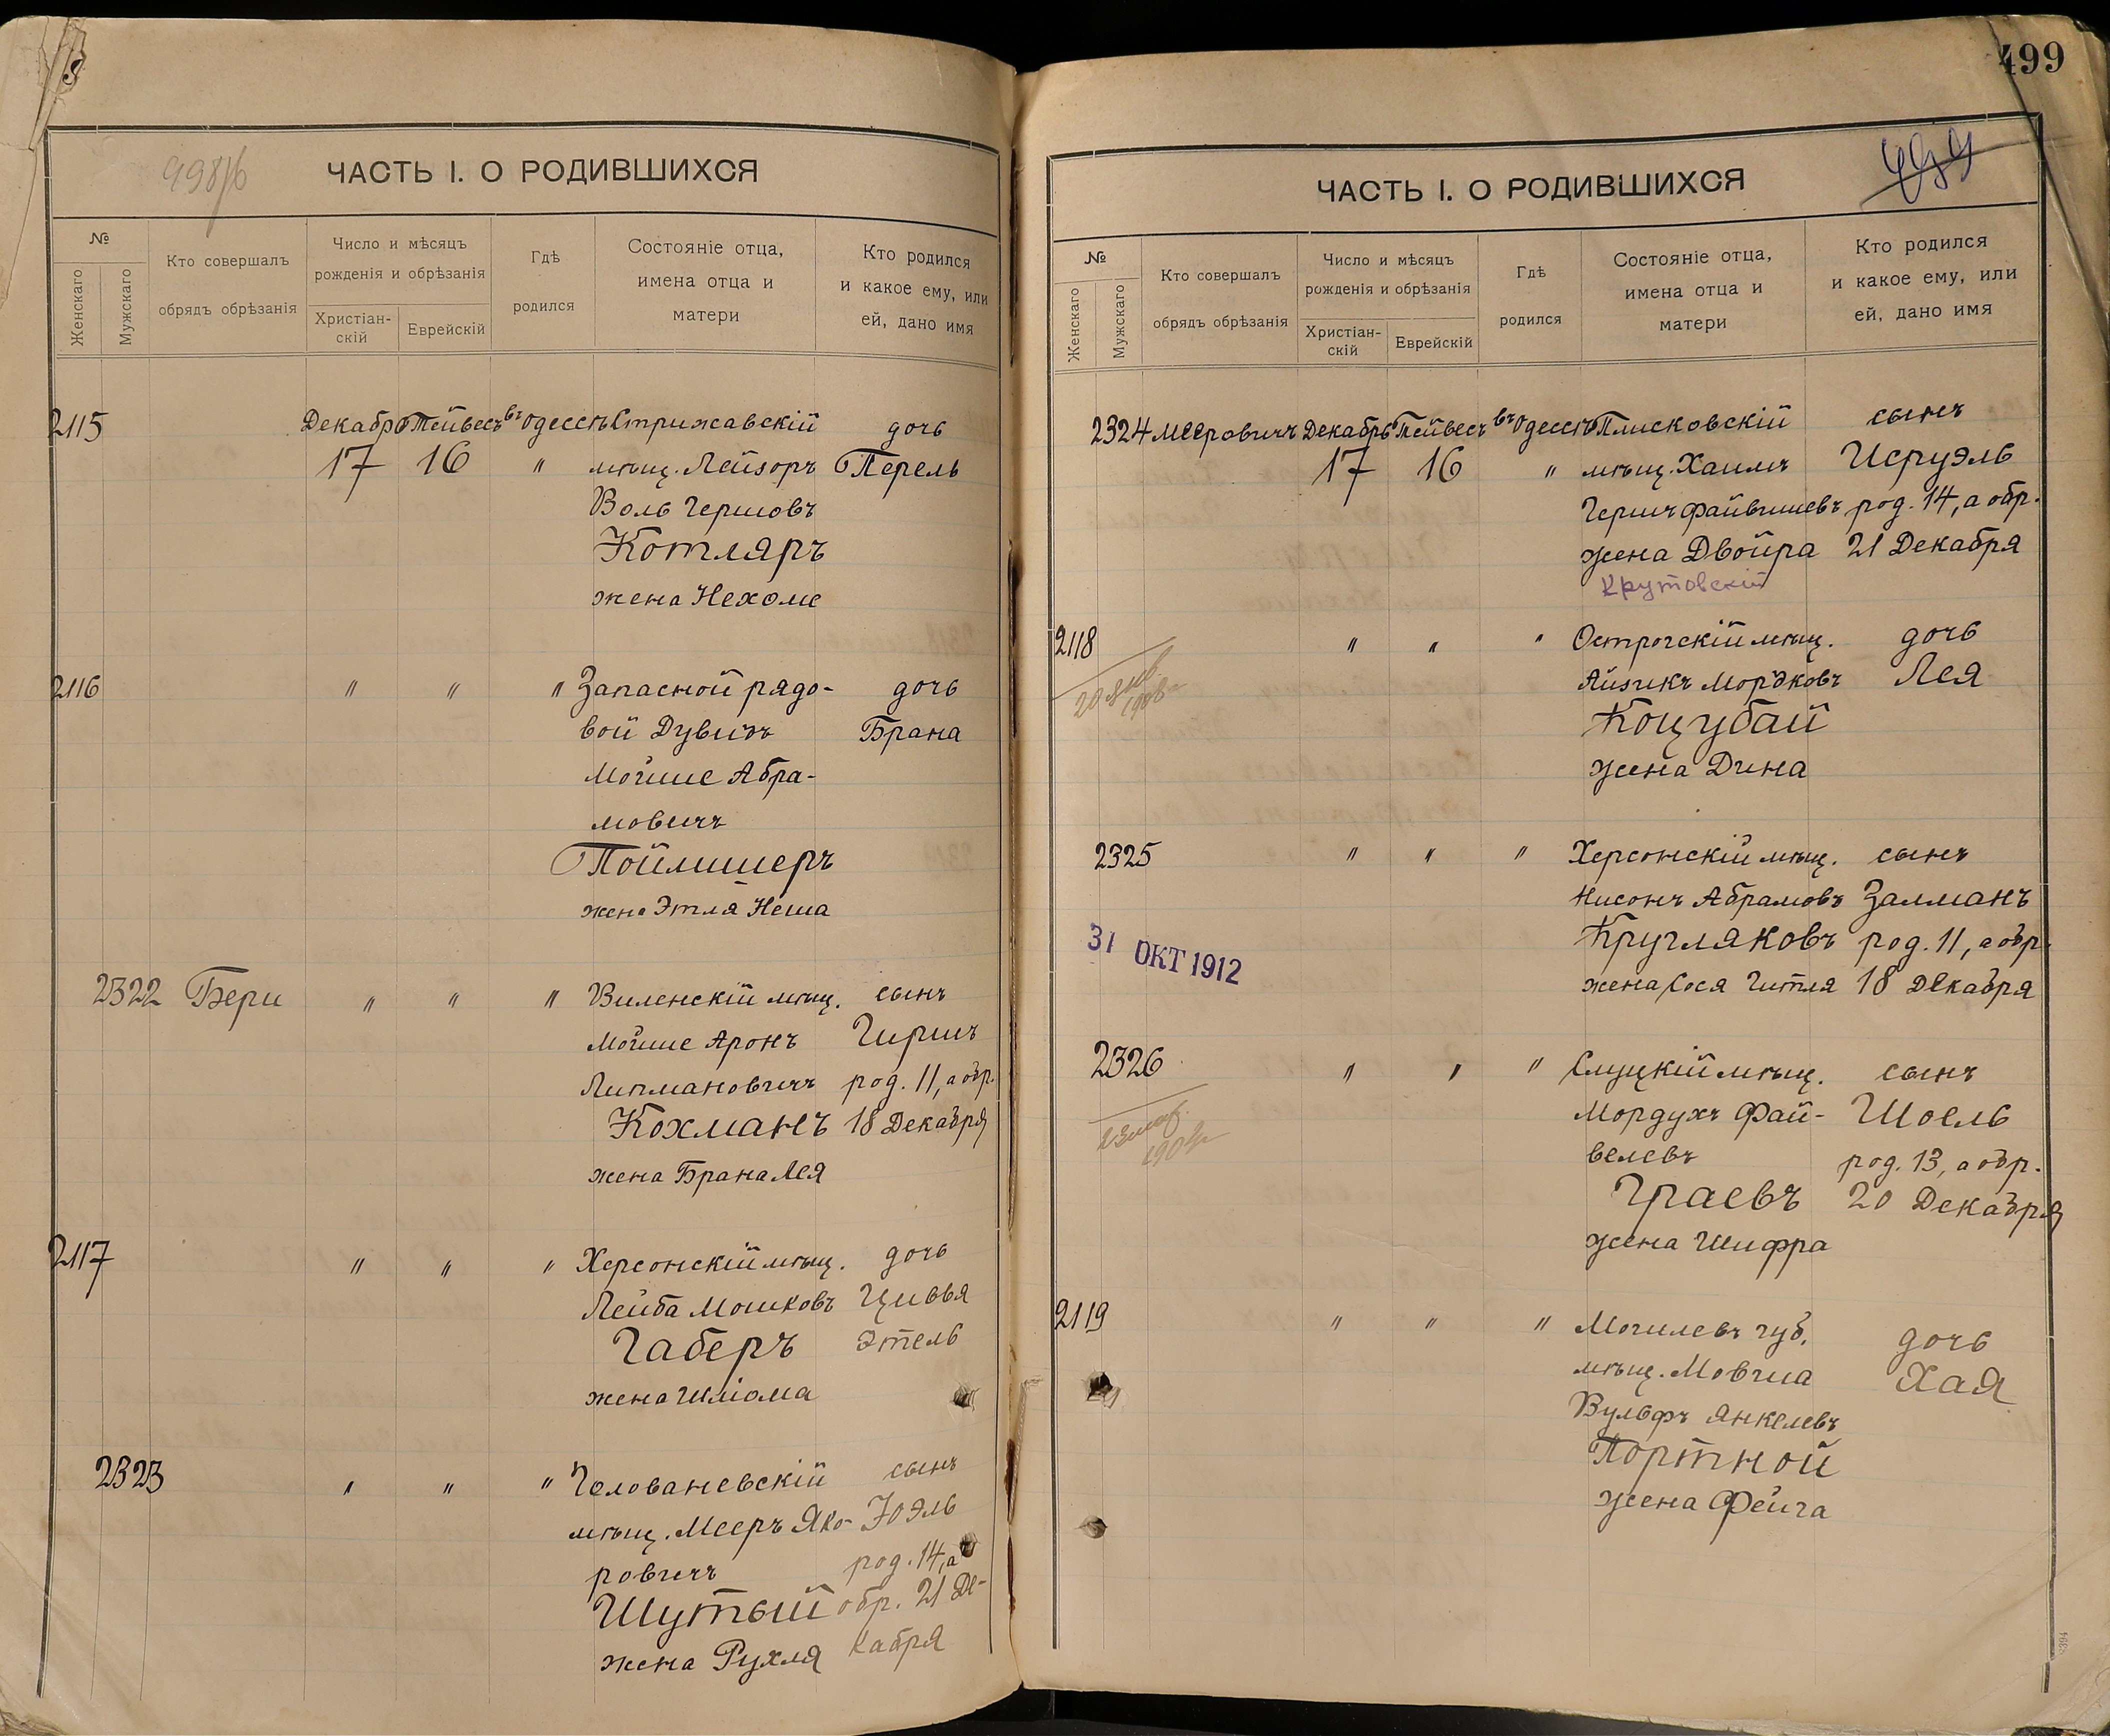 498/б
ЧАСТЬ I. О РОДИВШИХСЯ
№
Женскаго
Мужскаго
Кто совершалъ
обрядъ обрѣзанія
Число и мѣсяцъ
рожденія и обрѣзанія
Христіан-
скій
Еврейскій
Гдѣ
родился
Состояніе отца,
имена отца и
матери
Кто родился
и какое ему, или
ей, дано имя
2115 Декабрь Тейвесъ въ Одессѣ Стрижавскій дочь
17 16 " мѣщ. Лейзоръ Перель
Воль Гершовъ
Котляръ
жена Нехоме
2116 " " " Запасной рядо- дочь
вой Дувидъ Брана
Мойше Абра-
мовичъ
Тойлишеръ
жена Этля Неша
2322 Бери " " " Виленскій мѣщ. сынъ
Мойше Аронъ Гиршъ
Липмановичъ род. 11, а обр.
Кохманъ 18 Декабря
жена Брана Лея
2117 " " " Херсонскій мѣщ. дочь
Лейба Мошковъ Цивья
Габеръ Этель
жена Шліома
2323 " " " Голованевскій сынъ
мѣщ. Мееръ Яко- Юэль
ровичъ род. 14, а
Шутый обр. 21 Де-
жена Рухля кабря
499
499
ЧАСТЬ I. О РОДИВШИХСЯ
№
Женскаго
Мужскаго
Кто совершалъ
обрядъ обрѣзанія
Число и мѣсяцъ
рожденія и обрѣзанія
Христіан-
скій
Еврейскій
Гдѣ
родился
Состояніе отца,
имена отца и
матери
Кто родился
и какое ему, или
ей, дано имя
2324 Мееровичъ Декабрь Тейвесъ въ Одессѣ Плисковскій сынъ
17 16 " мѣщ. Хаимъ Исруэль
Гершъ Файвишевъ род. 14, а обр.
жена Двойра 21 Декабря
Крутовскій
2118 " " " Острогскій мѣщ. дочь
Айзикъ Мордковъ Лея
Коцубай
жена Дина
2325 " " " Херсонскій мѣщ. сынъ
Нисонъ Абрамовъ Залманъ
Кругляковъ род. 11, а обр.
31 ОКТ 1912
жена Сося Гитля 18 Декабря
2326 " " " Слуцкій мѣщ. сынъ
Мордухъ Фай- Шоель
велевъ род. 13, а обр.
Граевъ 20 Декабря
жена Шифра
2119 " " " Могилевъ губ. дочь
мѣщ. Мовша Хая
Вульфъ Янкелевъ
Портной
жена Фейга